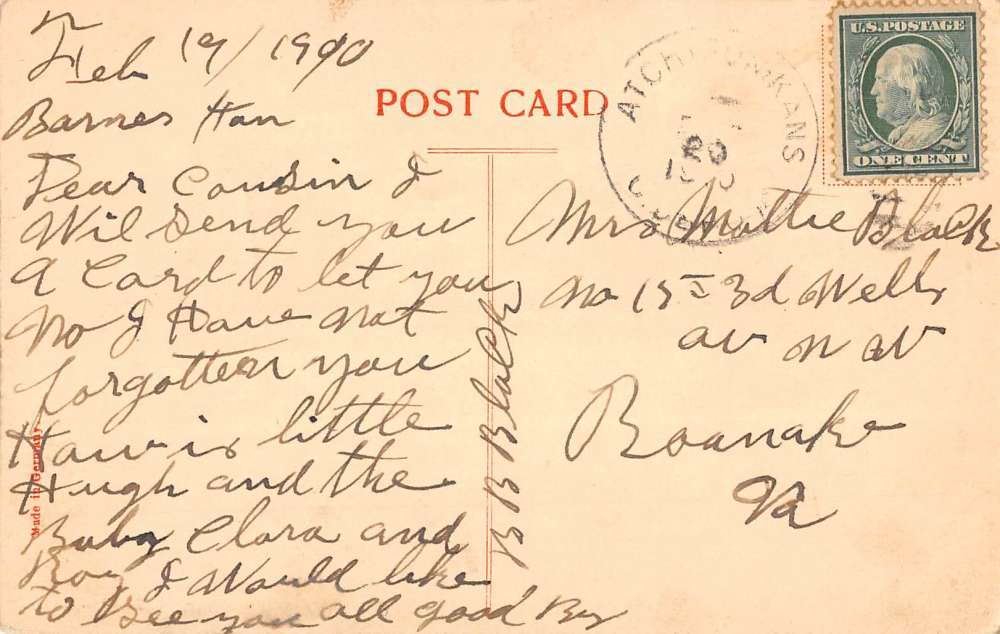 Feb 19/1910
Barnes Kan
Dear Cousin I
Wil Send you
A Card to let you
No I Have Not
forgotten you
How is little
Hugh and the
Baby Clara and
Roy I Would like
to See you all good By
B B Black
Made in Germany.
POST CARD
ATCH KANS
U.S. POSTAGE
ONE CENT
Mrs Mattie Black
No 3d Wells
av N W
Roanake
Va